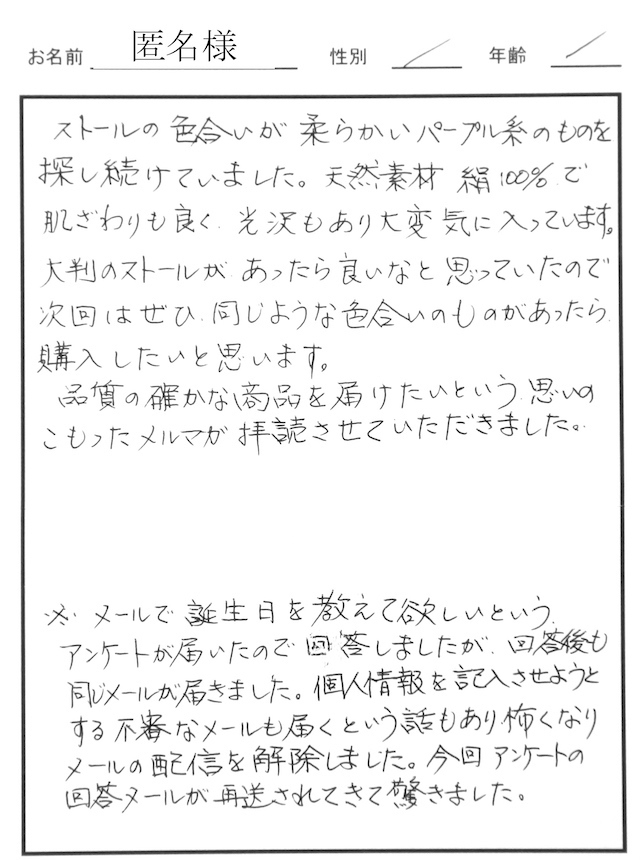 お名前 匿名様 性別 年齢
ストールの色合いが柔らかいパープル系のものを
探し続けていました。天然素材 絹100%で
肌ざわりも良く、光沢もあり大変気に入っています。
大判のストールがあったら良いなと思っていたので
次回はぜひ、同じような色合いのものがあったら
購入したいと思います。
品質の確かな商品を届けたいという思いの
こもったメルマガ拝読させていただきました。
※メールで誕生日を教えて欲しいという
アンケートが届いたので回答しましたが、回答後も
同じメールが届きました。個人情報を記入させようと
する不審なメールも届くという話もあり怖くなり
メールの配信を解除しました。今回アンケートの
回答メールが再送されてきて驚きました。